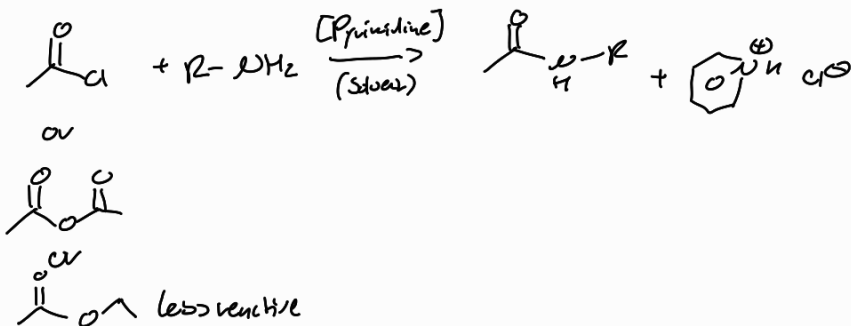 O
Cl + R-NH2 [Pyrimidine] (Solvent) O N H R + N H ⊕ Cl⊖
or
O O O
or
O O less reactive